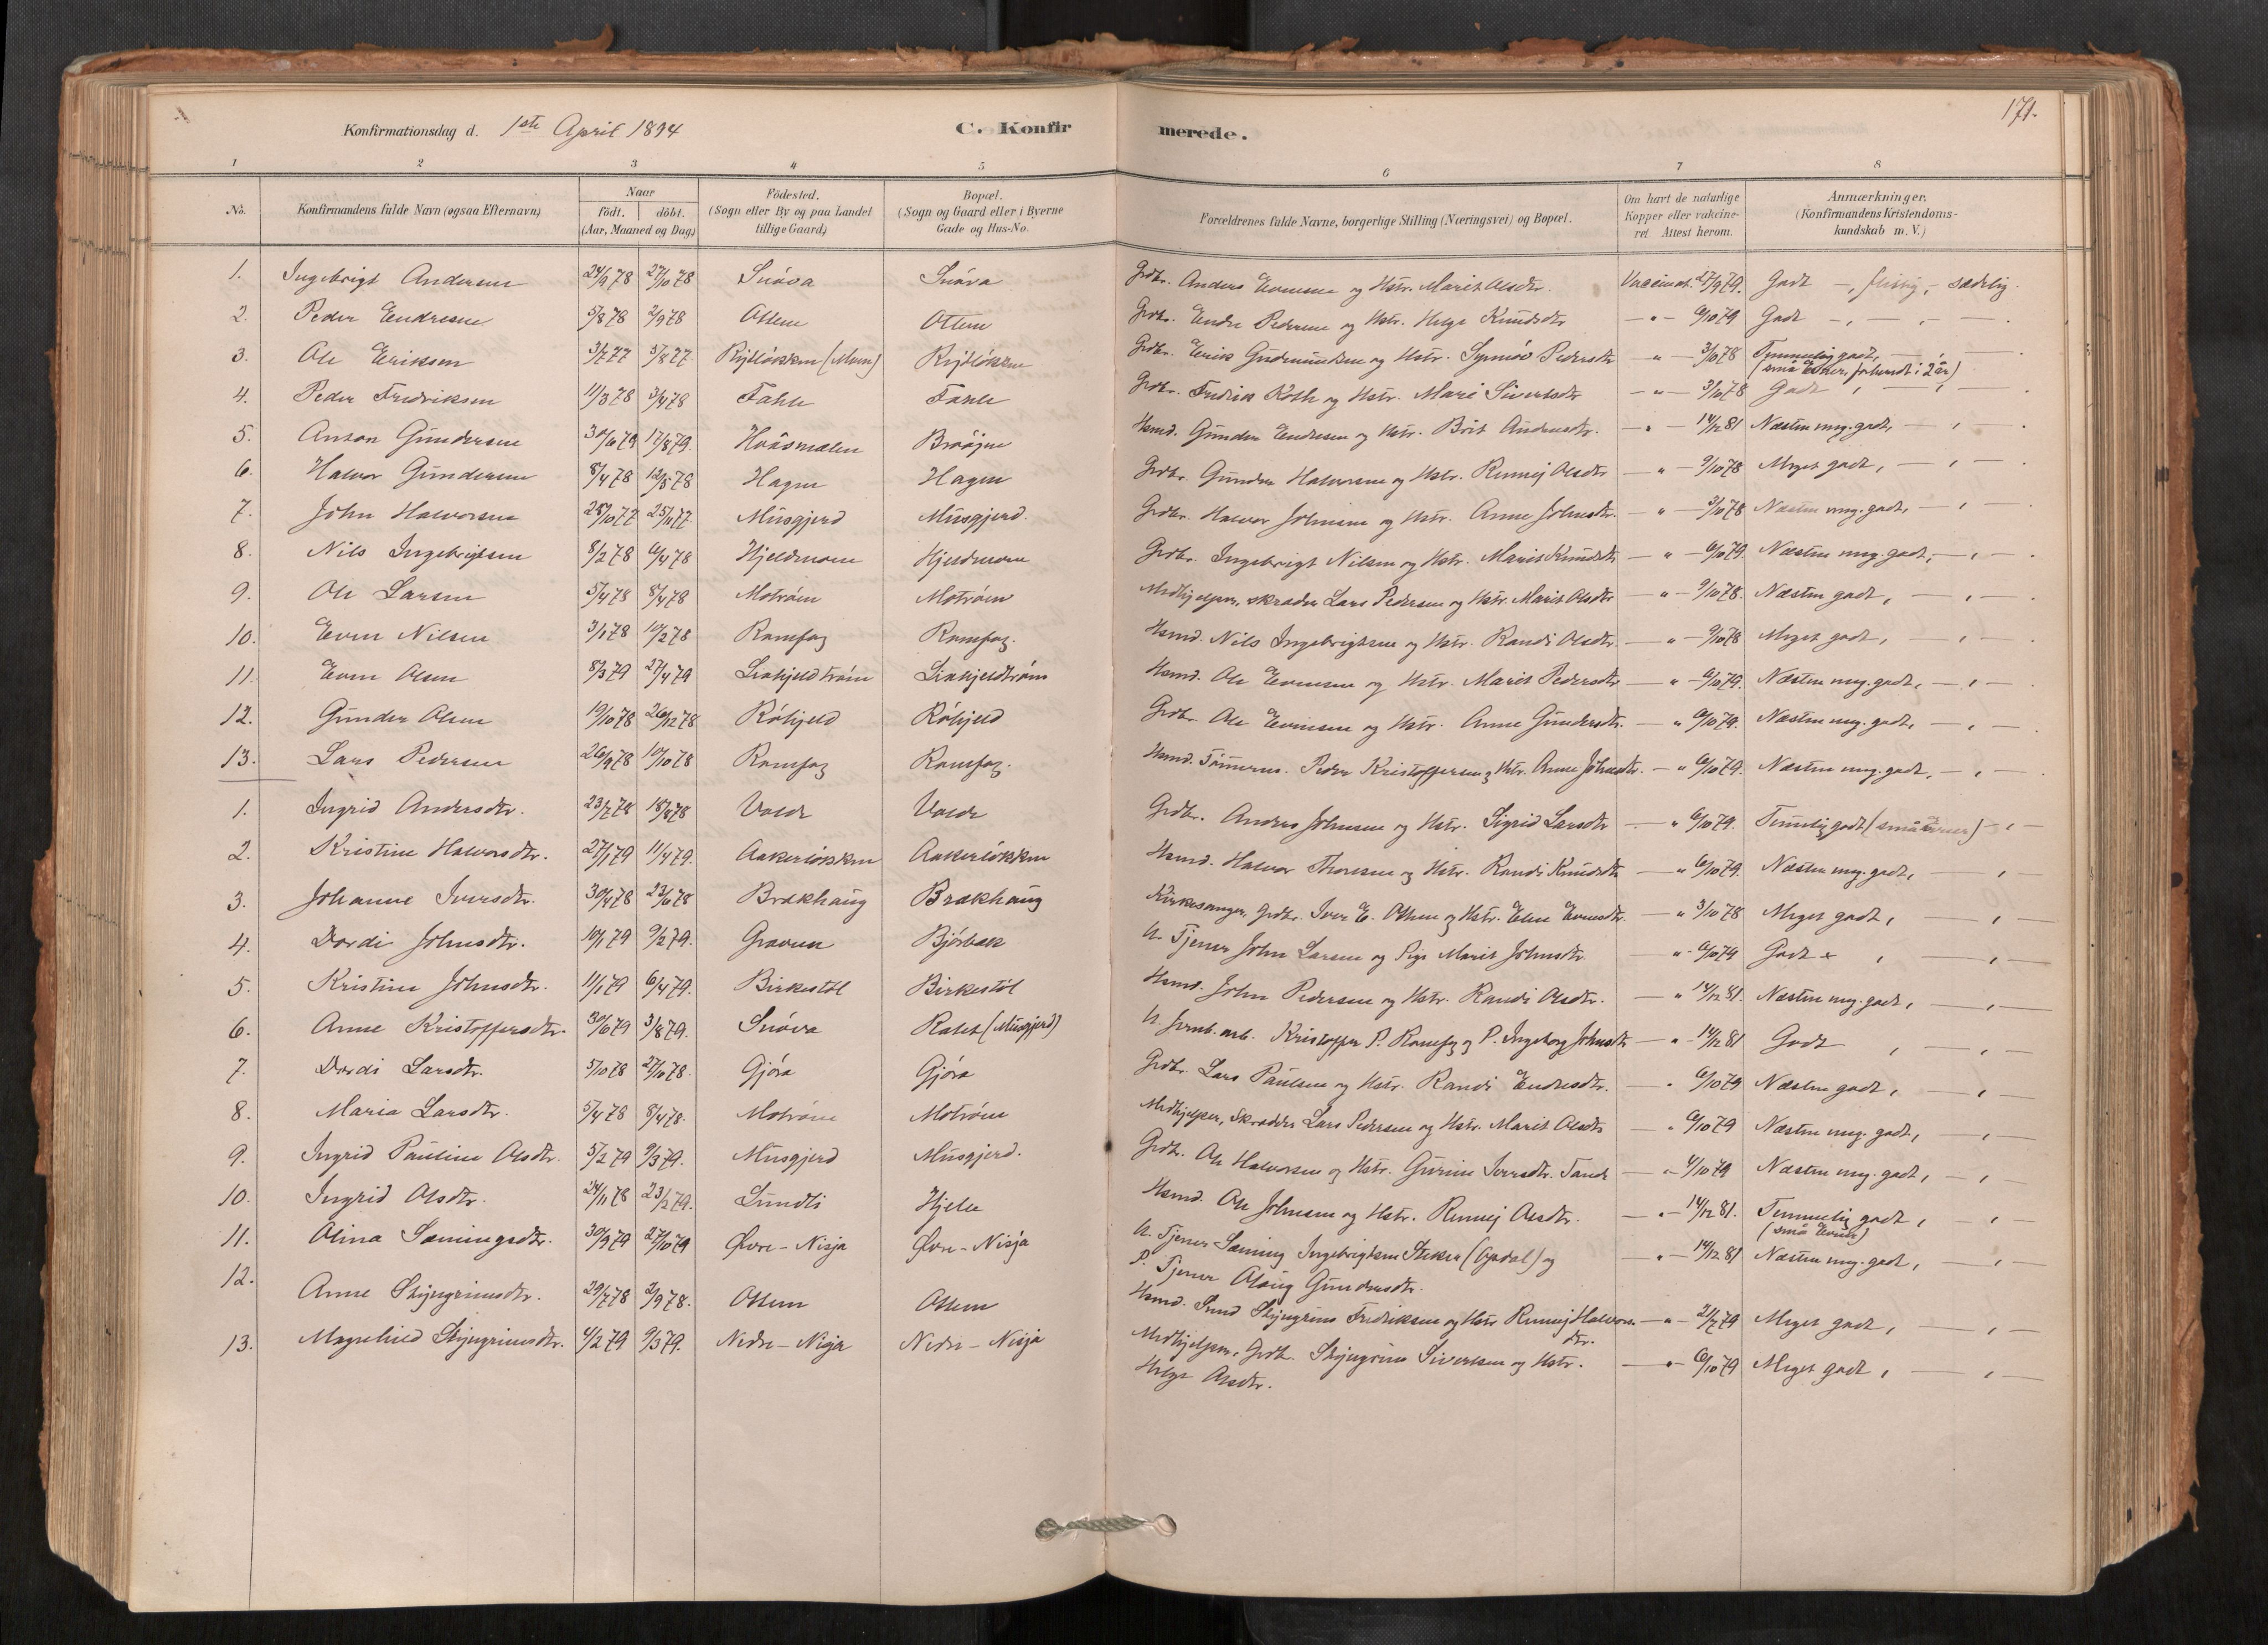 Konfirmationsdag d. 1ste April 1894 C. Konfir merede. 171.
1 2 3 4 5 6 7 8
No. Konfirmandens fulde Navn (ogsaa Efternavn) Naar födt. döbt. (Aar, Maaned og Dag) Födested. (Sogn eller By og paa Landet tillige Gaard) Bopæl. (Sogn og Gaard eller i Byerne Gade og Hus-No. Forældrenes fulde Navne, borgerlige Stilling (Næringsvei) og Bopæl. Om havt de naturlige Kopper eller vakcineret Attest herom. Anmærkninger. (Konfirmandens Kristendomskundskab m. V.)
1. Ingebrigt Andersen 24/9 78 27/10 78 Snöva Snöva Grdbr. Anders Evensen og Hstr. Marit Olsdtr. Vaccinat. 27/9 79. Godt -, flittig, - sædelig.
2. Peder Endresen 5/8 78 2/9 78 Ottem Ottem Grdbr. Endre Pedersen og Hstr. Helge Knudsdtr — " — 6/10 79 Godt —, — , —
3. Ole Eriksen 3/7 77 5/8 77 Rijtlökken (Mun) Rijtlökken Grdbr. Erik Gudmundsen og Hstr. Synnöv Pedersdtr " — 3/10 78 Temmelig godt,
(små Evner, forberedt i 2 år)
4. Peder Fredriksen 11/3 78 3/4 78 Fahle Fahle Grdbr. Fredrik Roth og Hstr. Marie Sivertsdtr — " — 3/10 78 Godt , — , —
5. Anton Gundersen 30/6 79 17/8 79. Hoåsmælen Braöjen Hsmd. Gunder Endresen og Hstr. Brit Andersdtr. — " — 14/12 81 Næsten meg. godt, — , —
6. Halvor Gundersen 8/4 78 12/5 78 Hagen Hagen Grdbr. Gunder Halvorsen og Hstr. Runnej Olsdtr — " — 9/10 78 Meget godt, — , — .
7. John Halvorsen 28/10 77 25/11 77. Musgjerd Musgjerd. Grdbr. Halvor Johnsen og Hstr. Anne Johnsdtr. — " — 3/10 78 Næsten meg. godt, — , —
8. Nils Ingebrigtsen 8/2 78 6/4 78 Hjeldmoen Hjeldmoen Grdbr. Ingebrigt Nilsen og Hstr. Marit Knudsdtr — " — 6/10 79 Næsten meg. godt, — , — .
9. Ole Larsen 5/4 78 8/4 78 Motröen Motröen Medhjelper, skræder Lars Pedersen og Hstr. Marit Olsdtr " — 9/10 78. Næsten godt, — , —
10. Even Nilsen 3/1 78 10/2 78 Romfog Romfog. Hsmd. Nils Ingebrigtsen og Hstr. Randi Olsdtr. — " — 9/10 78 Meget godt, — , —
11. Even Olsen 8/3 79 27/4 79 Liahjeldtröen Liahjeldtröen Hsmd. Ole Evensen og Hstr. Marit Pedersdtr — " — 6/10 79. Næsten meg. godt, — , — .
12. Gunder Olsen 19/10 78 26/12 78 Röhjeld Röhjeld Grdbr. Ole Evensen og Hstr. Anne Gundersdtr. — " 6/10 79. Næsten meg. godt, — , —
13. Lars Pedersen 26/9 78 10/10 78 Romfog Romfog. Hsmd. Tömmerm. Peder Kristoffersen og Hstr. Anne Johnsdtr. — " 6/10 79. Næsten meg. godt, — , — .
1. Ingrid Andersdtr. 23/7 78 18/8 78 Volde Volde Grdbr. Anders Johnsen og Hstr. Sigrid Larsdtr — " 6/10 79. Temmelig godt (små Evner) — , —
2. Kristine Halvorsdtr. 27/1 79 11/4 79. Aakerlökken Aakerlökken Hsmd. Halvor Thoresen og Hstr. Randi Knudsdtr — " 6/10 79. Næsten meg. godt, — , —
3. Johanne Iversdtr. 30/4 78 23/6 78 Brækhaug Brækhaug Kirkesanger, Grdbr. Iver E. Ottem og Hstr. Elen Evensdtr. — " 3/10 78 Meget godt, — , —
4. Dordi Johnsdtr. 10/1 79 9/2 79. Gravem Bjørbæk U. Tjener John Larsen og Pige Marit Johnsdtr. — " - 6/10 79 Godt , — , —
5. Kristine Johnsdtr. 11/1 79 6/4 79. Birkestöl Birkestöl Hsmd. John Pedersen og Hstr. Randi Olsdtr. — " 14/12 81. Næsten meg. godt, — , —
6. Anne Kristoffersdtr. 30/6 79 3/8 79. Snöva Rotet (Musgjerd) U. Jernb. arb. Kristoffer P. Romfog og P. Ingeborg Johnsdtr — " - 14/12 81 Godt , — , —
7. Dordi Larsdtr. 5/10 78 27/10 78. Gjöra Gjöra Grdbr. Lars Paulsen og Hstr. Randi Endresdtr. — " 6/10 79 Næsten godt, — , —
8. Maria Larsdtr. 5/4 78 8/4 78. Motröen Motröen Medhjelper, Skrædder Lars Pedersen og Hstr. Marit Olsdtr — " 6/10 79 Næsten meg. godt, — , —
9. Ingrid Pauline Olsdtr. 5/2 79 9/3 79. Musgjerd Musgjerd. Grdbr. Ole Halvorsen og Hstr. Gurine Iversdtr. Tande — " - 4/10 79 Næsten meg. godt, — , —
10. Ingrid Olsdtr. 24/11 78 23/2 79. Lundli Hjelle Hsmd. Ole Johnsen og Hstr. Runnej Olsdtr. — " - 14/12 81. Temmelig godt, — , —
(små Evner)
11. Olina Sæmingsdtr. 30/9 79 27/10 79 Øvre - Nisja Øvre - Nisja U. Tjener Sæming Ingebrigtsen Stuksr (Opdal) og — " - 14/12 81 Næsten meg. godt, — , —
P. Tjener Olaug Gundersdtr.
12. Anne Skjugrimsdtr. 29/7 78 2/9 78. Ottem Ottem Hsmd. Smed Skjugrim Fredriksen og Hstr Runnej Halvors- — " - 21/7 79 Meget godt, — , —
dtr.
13. Magnhild Skjugrimsdtr. 4/2 79 9/3 79. Nedre - Nisja Nedre - Nisja Medhjelper, Grdbr. Skjugrim Sivertsen og Hstr. — " - 6/10 79 Meget godt, — , —
Helge Olsdtr.